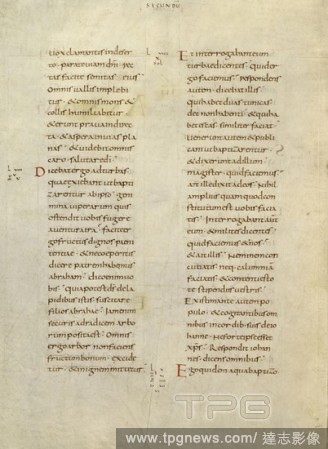 SECUNDU
uox clamantis indeser
to · parate uiam dni · rec
tas facite semitas eius
Omnis uallis implebi
tur · & omnis mons &
collis humiliabitur
& erunt praua indirec
ta · & aspera in uias pla
nas · & uidebit omnis
caro · salutare di ·
Dicebat ergo ad turbas
quae exiebant ut bapti
zarentur ab ipso · geni
mina uiperarum quis
ostendit uobis fugere
a uentura ira · facite er
go fructus dignos peni
tentiae · & ne coeperitis
dicere patrem habemus
abraham · dico enim uo
bis · quia potest ds de la
pidibus istis suscitare
filios abrahae · Iam enim
securis ad radicem arbo
rum posita est · Omnis
ergo arbor non faciens
fructum bonum · excide
tur · & in ignem mittitur ·
Et interrogabant eum
turbae dicentes · quid er
go faciemus · respondens
autem dicebat illis ·
qui habet duas tunicas
det non habenti · & qui ha
bet escas · similiter faciat
Uenerunt autem & publi
cani ut baptizarentur ·
& dixerunt ad illum
magister · quid faciemus ·
at ille dixit ad eos · Nihil
amplius quam quod con
stitutum est uobis facia
tis · Interrogabant aut
eum · & milites dicentes
quid faciemus & nos ·
& ait illis · Neminem con
cutiatis · neq· calumniā
faciatis · & contenti esto
te stipendiis uestris ·
Existimante autem po
pulo · & cogitantibus om
nibus in cordibus suis de io
hanne · Ne forte ipse esset
xps · Respondit iohan
nes · dicens omnibus ·
Ego quidem aqua baptizo
TPG
www.tpgnews.com/達志影像